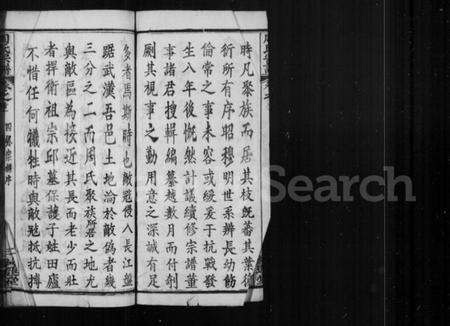 時凡聚族而居其枝旣蕃其葉衍
衍所有序昭穆明世系辨長幼飭
倫常之事未容或緩爰于抗戰發
生八年後慨然計議續修宗譜董
事諸君搜輯編纂越數月而付剞
劂其視事之勤用意之深誠有足
多者焉斯時也敵寇侵入長江盤
踞武漢吾邑土地淪於敵偽者幾
三分之二而周氏聚族居之地尤
與敵區為接近其長而老少而壯
者捍衛祖宗邱墓保護子姓田廬
不惜任何犧牲時與敵冦抵抗搏
Search